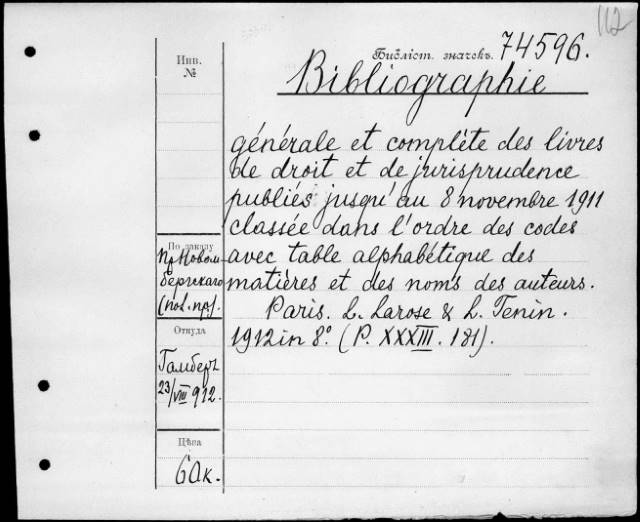 112
Библіот. значекъ. 74596.
Инв.
№
Bibliographie
générale et complète des livres
de droit et de jurisprudence
publiés jusqu'au 8 novembre 1911
classée dans l'ordre des codes
avec table alphabétique des
matières et des noms des auteurs.
Paris. L. Larose & L. Tenin.
1912 in 8º. (P. XXXIII. 181).
По заказу
пр. Новом
бергскаго
Откуда
Гамберъ
23/VIII 912.
Цѣна
60к.